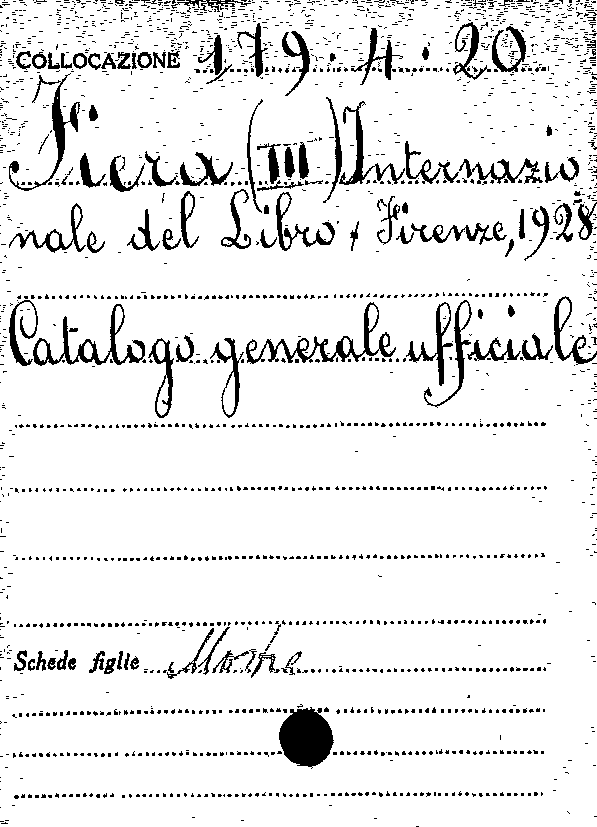 COLLOCAZIONE 179.4.20
Fiera (III) Internazio
nale del Libro, Firenze, 1928
Catalogo generale ufficiale
Schede figlie Mostre